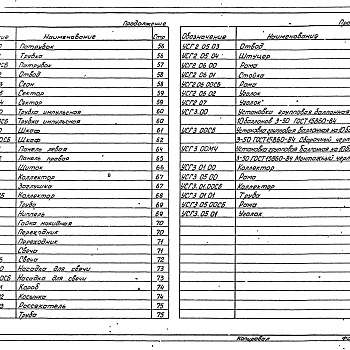 Продолжение
Наименование Стр.
Патрубок 56
Трубка 56
Патрубок 57
Отвод 58
Стон 58
Сектор 59
Сектор 59
Трубка импульсная 60
ОСБ Трубка импульсная 60
Шкаф 61
Шкаф 62
Панель левая 64
Панель правая 65
Щиток 66
Коллектор 67
Заглушка 67
Коллектор 68
Труба 69
Ниппель 69
Гайка накидная 70
Переходник 70
Переходник 71
Свеча 71
Свеча 72
Насадка для свечи 73
Насадка для свечи 73
Короб 74
Косынка 74
Рассекатель 75
Труба 75
Обозначение Наименование
УСГ2 05 03 Отвод
УСГ2 05 04 Штуцер
УСГ2 06 00 Рама
УСГ2 06 01 Стойка
УСГ2 06 00СБ Рама
УСГ2 06 02 Уголок
УСГ2 07 Уголок
УСГ3.00 Установка групповая баллонная
10 баллонов 3-50 ГОСТ 15860-84
УСГ3 00СБ Установка групповая баллонная на 10 ба
3-50 ГОСТ 15860-84 Сборочный черт
УСГ3 00МЧ Установка групповая баллонная на 10 ба
3-50 ГОСТ 15860-84 Монтажный черт
УСГ3 01 00 Коллектор
УСГ3. 05 00 Рама
УСГ3. 01.00СБ Коллектор
УСГ3 01 01 Труба
УСГ3.05 00СБ Рама
УСГ3. 05.01 Уголок
Копировал